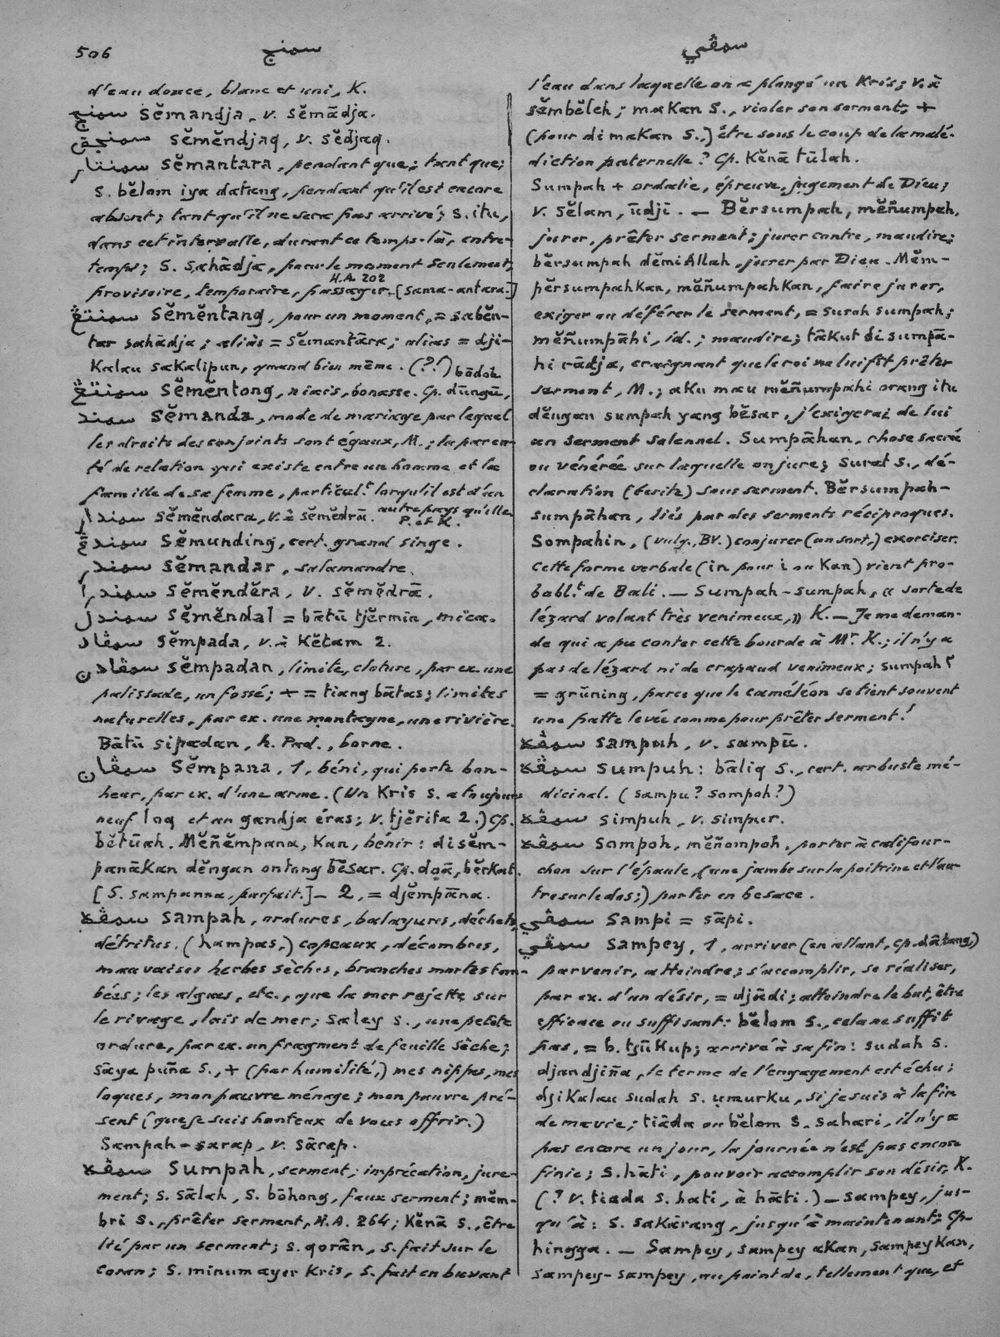 506 سمنج سمڤي
d'eau douce, blanc et uni, K.
سمنج sĕmandja, v. sĕmādja.
سمنجق sĕmĕndjaq, v. sĕdjaq.
سمنتار sĕmantara, pendant que; tant que;
s. bĕlom iya datang, pendant qu'il est encore
absent; tant qu'il ne sera pas arrivé; s. itu,
dans cet intervalle, durant ce temps-là, entre-
temps; s. sahādja, pour le moment seulement,
H.A. 202
provisoire, temporaire, passager. [sama-antara.]
سمنتڠ sĕmĕntang, pour un moment, = sabĕn-
tar sahādja; aliàs = sĕmantāra; alias = dji-
Kalau saKalipun, quand bien même. (?!)
سمنتڠ sĕmĕntong, niais, bonasse. Cp. dūngū, bādoh
سمند sĕmanda, mode de mariage par lequel
les droits des conjoints sont égaux, M.; la paren-
té de relation qui existe entre un homme et la
famille de sa femme, particul.t lorsqu'il est d'un
autre pays qu'elle
سمندار sĕmĕndara, v. à sĕmĕdrā. P. et K.
سمندڠ sĕmunding, cert. grand singe.
سمندر sĕmandar, salamandre.
سمندرا sĕmĕndĕra, v. sĕmĕdrā.
سمندل sĕmĕndal = bātū tjĕrmin, mica.
سمڤاد sĕmpada, v. à Kĕtam 2.
سمڤادن sĕmpadan, limite, cloture, par ex. une
palissade, un fossé; + = tiang bātas; limites
naturelles, par ex. une montagne, une rivière.
Bātū sipadan, h. Pad., borne.
سمڤان sĕmpana, 1, béni, qui porte bon-
heur, par ex. d'une arme. (Un Kris s. a toujours
neuf loq et un gandja éras; v. tjĕrita 2.) Cp.
bĕtūah. Mĕñĕmpana, Kan, bénir: disĕm-
panāKan dĕngan ontong bĕsar. Cp. doā, bĕrKat.
[S. sampanna, parfait.] — 2, = djĕmpāna.
سمڤه sampah, ordures, balayures, déchets,
détritus. (hampas,) copeaux, décombres,
mauvaises herbes sèches, branches mortes tom-
bées; les algues, etc., que la mer rejette sur
le rivage, lais de mer; saley s., une petite
ordure, par ex. un fragment de feuille sèche;
sāya puña s., + (par humilité,) mes nippes, mes
loques, mon pauvre ménage; mon pauvre pré-
sent (que je suis honteux de vous offrir.)
Sampah-sarap, v. sārap.
سمڤه sumpah, serment; imprécation, jure-
ment; s. sālah, s. bōhong, faux serment; mĕm-
bri s., prêter serment, H.A. 264; Kĕnā s., être
lié par un serment; s. qorān, s. fait sur le
Coran; s. minum ayer Kris, s. fait en buvant
l'eau dans laquelle on a plongé un Kris; v. à
sĕmbĕleh; maKan s., violer son serment; +
(pour di maKan s.,) être sous le coup de la malé-
diction paternelle? Cp. Kĕnā tūlah.
Sumpah + ordalie, épreuve, jugement de Dieu;
v. sĕlam, ūdji. — Bĕrsumpah, mĕñumpah,
jurer, prêter serment; jurer contre, maudire;
bĕrsumpah dĕmi Allah, jurer par Dieu. Mĕm-
pĕrsumpahKan, mĕñumpahKan, faire jurer,
exiger ou déférer le serment, = suroh sumpah;
mĕñumpāhi, id.; maudire; tāKut di sumpā-
hi rādja, craignant que le roi ne lui fît prêter
serment, M.; aKu mau mĕñumpahi orang itu
dĕngan sumpah yang bĕsar, j'exigerai de lui
un serment solennel. Sumpāhan, chose sacrée
ou vénérée sur laquelle on jure; surat s., dé-
claration (écrite) sous serment. Bĕrsumpah-
sumpāhan, liés par des serments réciproques.
Sompahin, (vulg., BV.) conjurer (un sort,) exorciser.
Cette forme verbale (in pour i ou Kan) vient pro-
babl.t de Bali. — Sumpah-sumpah, « sorte de
lézard volant très venimeux, » K. — Je me deman-
de qui a pu conter cette bourde à Mr K.; il n'y a
pas de lézard ni de crapaud venimeux; sumpah s
= grūning, parce que le caméléon se tient souvent
une patte levée comme pour prêter serment!
سمڤه sampuh, v. sampū.
سمڤه sumpuh: bāliq s., cert. arbuste mé-
dicinal. (sampu? sompoh?)
سمڤه simpuh, v. simpur.
سمڤه sompoh, mĕñompoh, porter à califour-
chon sur l'épaule, (une jambe sur la poitrine et l'au-
tre sur le dos;) porter en besace.
سمڤي sampi = sāpi.
سمڤي sampey, 1, arriver (en allant, cp. dātang,)
parvenir, atteindre; s'accomplir, se réaliser,
par ex. d'un désir, = djādi; atteindre le but, être
efficace ou suffisant: bĕlom s., cela ne suffit
pas, = b. tjūKup; arrivé à sa fin: sudah s.
djandjiña, le terme de l'engagement est échu;
djiKalau sudah s. umurKu, si je suis à la fin
de ma vie; tiāda ou bĕlom s. sahari, il n'y a
pas encore un jour, la journée n'est pas encore
finie; s. hāti, pouvoir accomplir son désir, K.
(? v. tiada s. hati, à hāti.) — sampey, jus-
qu'à: s. saKārang, jusqu'à maintenant; Cp.
hingga. — Sampey, sampey aKan, sampeyKan,
sampey-sampey, au point de, tellement que, et